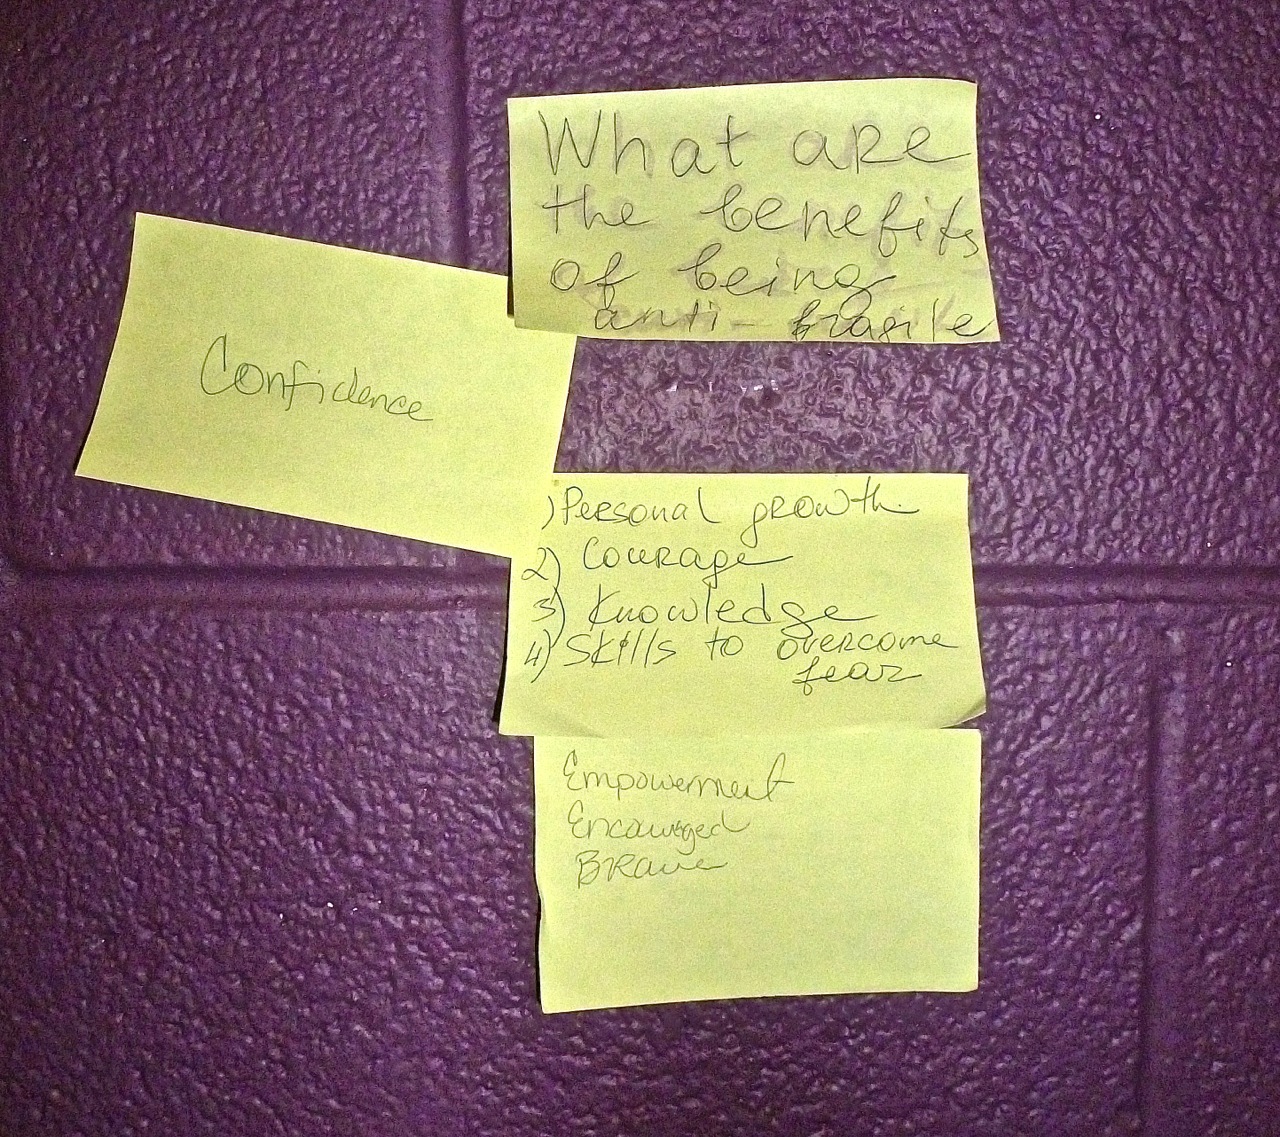 What are
the benefits
of being
anti-fragile
Confidence
1) Personal growth.
2) Courage
3) Knowledge
4) Skills to overcome
fear
Empowerment
Encouraged
Brave